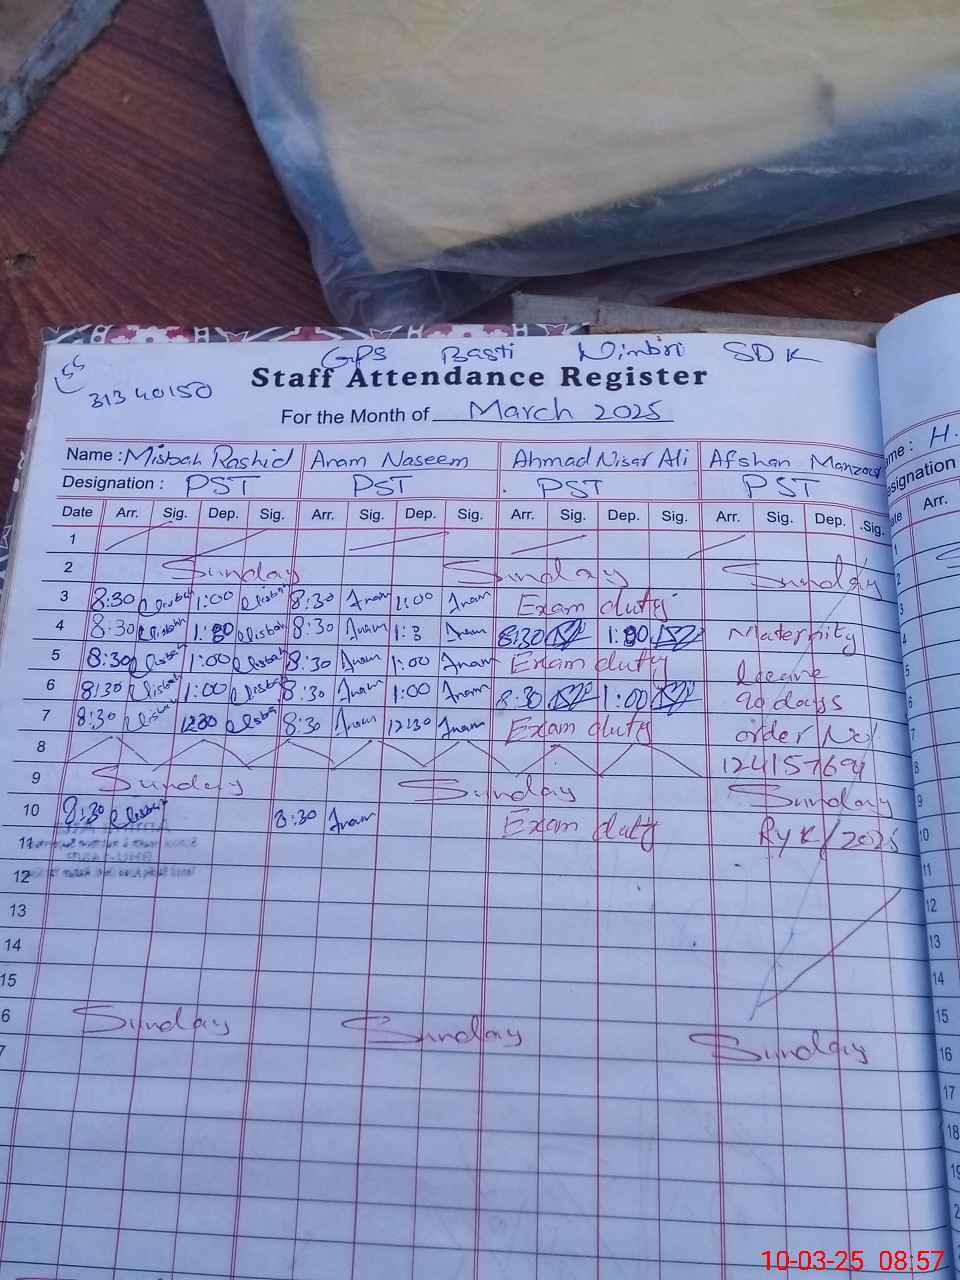 GPS Basti Nimbri SDK
31340150
Staff Attendance Register
For the Month of March 2025
Name : Misbah Rashid Anam Naseem Ahmad Nisar Ali Afshan Manzoor
Designation : PST PST PST PST
Date Arr. Sig. Dep. Sig. Arr. Sig. Dep. Sig. Arr. Sig. Dep. Sig. Arr. Sig. Dep. Sig.
1
2 Sunday Sunday Sunday
3 8:30 Misbah 1:00 Misbah 8:30 Anam 1:00 Anam Exam duty
4 8:30 Misbah Misbah 8:30 Anam Anam 8:30 Maternity
5 8:30 Misbah 1:00 Misbah 8:30 Anam 1:00 Anam Exam duty Leave
6 8:30 Misbah 1:00 Misbah 8:30 Anam 1:00 Anam 8:30 1:00 90 days
7 8:30 Misbah 12:30 Misbah 8:30 Anam 12:30 Anam Exam duty order No
8
9 Sunday Sunday Sunday
10 8:30 Misbah 8:30 Anam Exam duty RYK/2025
11
12
13
14
15
6 Sunday Sunday Sunday
7
me : H.
esignation
Arr.
10
11
12
13
14
15
16
17
18
10-03-25 08:57